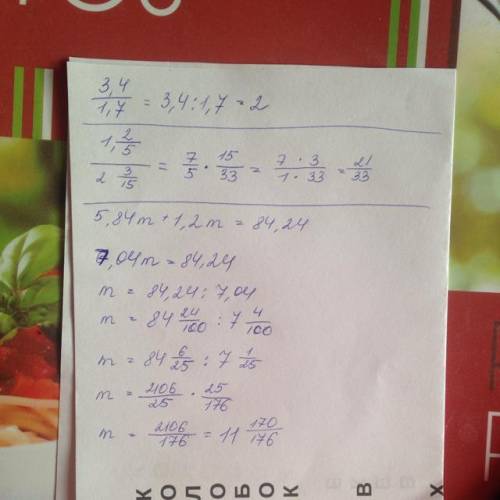 3,4/1,7 = 3,4 : 1,7 = 2
1,2/5 / 2 3/15 = 7/5 · 15/33 = 7 · 3/1 · 33 = 21/33
5,84m + 1,2m = 84,24
7,04m = 84,24
m = 84,24 : 7,04
m = 84 24/100 : 7 4/100
m = 84 6/25 : 7 1/25
m = 2106/25 · 25/176
m = 2106/176 = 11 170/176
КОЛОБОК В Х